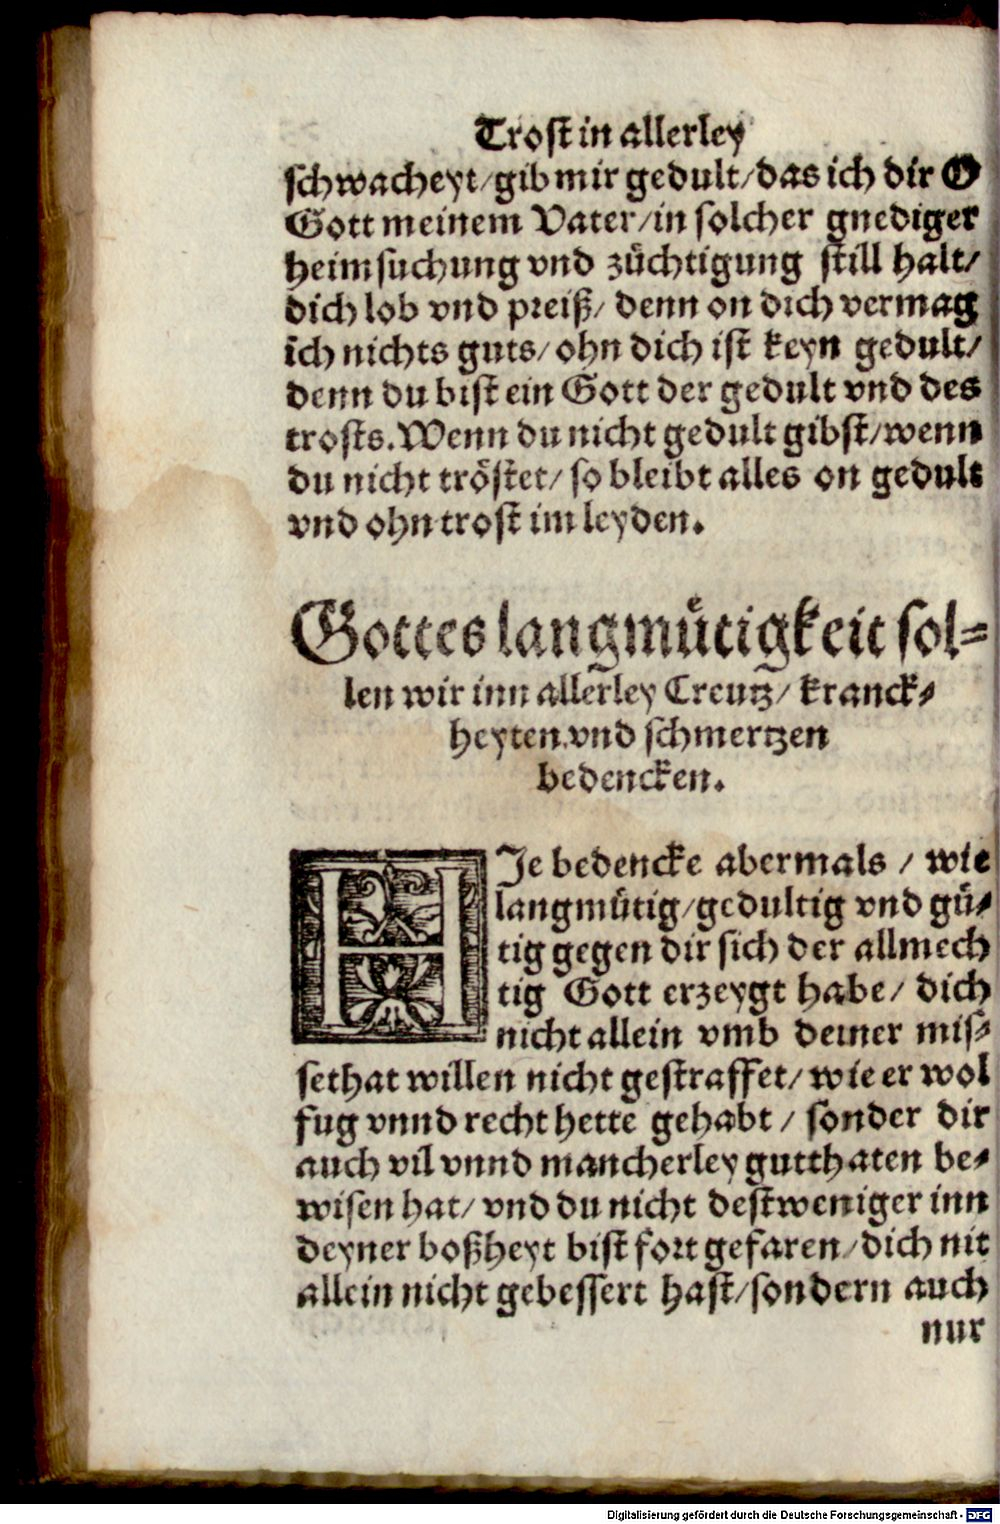 Trost in allerley
schwacheyt/gib mir gedult/das ich dir O
Gott meinem Vater/in solcher gnediger
heimsuchung vnd züchtigung still halt/
dich lob vnd preiß/ denn on dich vermag
ich nichts guts/ohn dich ist keyn gedult/
denn du bist ein Gott der gedult vnd des
trosts.Wenn du nicht gedult gibst/wenn
du nicht tröstet/ so bleibt alles on gedult
vnd ohn trost im leyden.
Gottes langmütigkeit sol=
len wir inn allerley Creutz/ kranck=
heyten vnd schmertzen
bedencken.
HIe bedencke abermals / wie
langmütig/gedultig vnd gü=
tig gegen dir sich der allmech
tig Gott erzeygt habe/ dich
nicht allein vmb deiner mis=
sethat willen nicht gestraffet/ wie er wol
fug vnnd recht hette gehabt / sonder dir
auch vil vnnd mancherley gutthaten be=
wisen hat/ vnd du nicht destweniger inn
deyner boßheyt bist fort gefaren/dich nit
allein nicht gebessert hast/sondern auch
nur
Digitalisierung gefördert durch die Deutsche Forschungsgemeinschaft - DFG